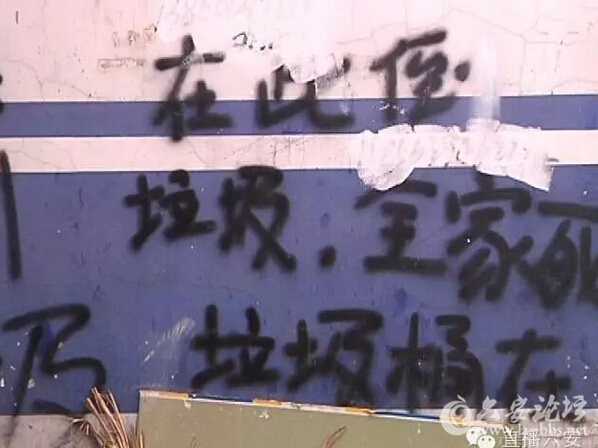 在此倒
垃圾，全家死
垃圾桶在
六安论坛
直播六安